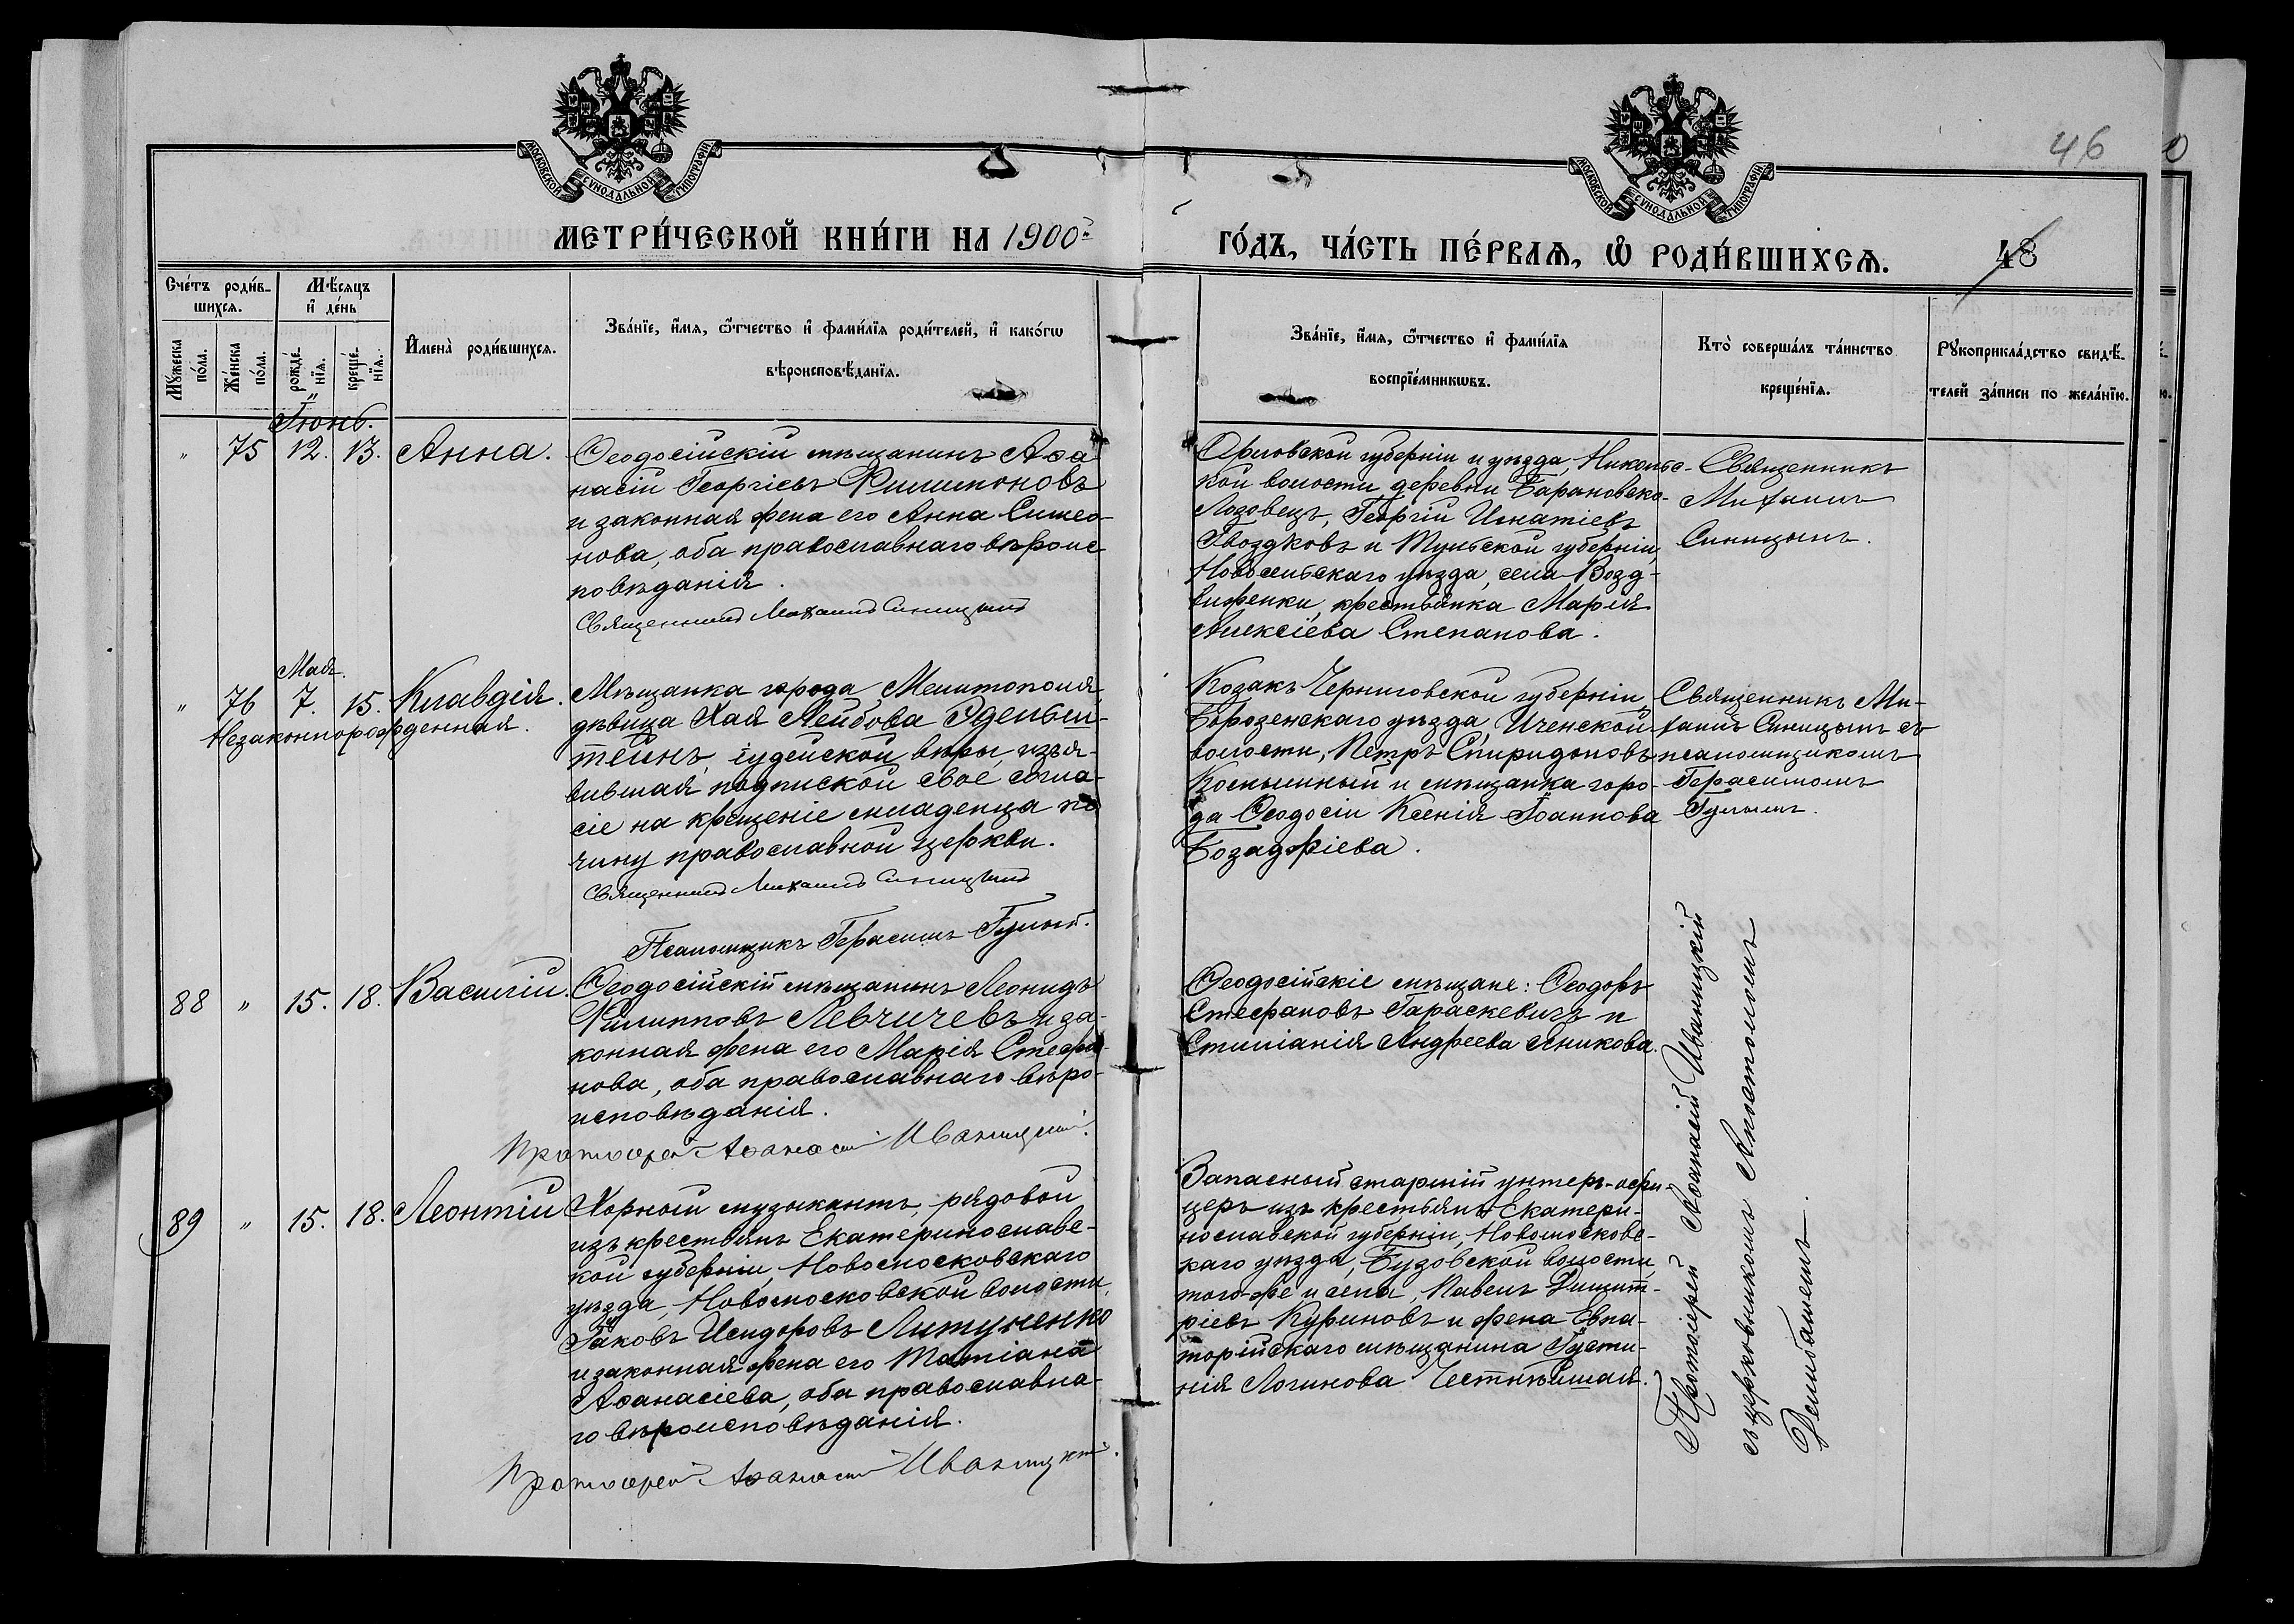 МОСКОВСКОЙ СУНОДАЛЬНОЙ ТИПОГРАФІИ
МОСКОВСКОЙ СУНОДАЛЬНОЙ ТИПОГРАФІИ
46
МЕТРИ́ЧЕСКОЙ КНИ́ГИ НА 1900й
ГО́ДЪ, ЧА́СТЬ ПЕ́РВАѦ, Ѽ РОДИ́ВШИХСѦ.
48
Сче́тъ роди́в-
шихсѧ.
Мѣ́сѧцъ
и҆ де́нь
Мꙋ́жеска
по́ла.
Же́нска
по́ла.
рожде́-
нїѧ.
креще́-
нїѧ.
И҆мена̀ роди́вшихсѧ.
Зва́нїе, и҆́мѧ, ѻ҆́тчество и҆ фами́лїѧ роди́телей, и҆ како́гѡ
вѣроисповѣ́данїѧ.
Зва́нїе, и҆́мѧ, ѻ҆́тчество и҆ фами́лїѧ
воспрїе́мникѡвъ.
Кто̀ соверша́лъ та́инство
креще́нїѧ.
Рꙋкоприкла́дство свидѣ́-
телей за́писи по жела́нїю.
Іюнь.
" 75 12. 13. Анна.
Ѳеодосійскій мѣщанинъ Аѳа
насій Георгіевъ Филимоновъ
и законная жена его Анна Симео-
нова, оба православнаго вѣроис
повѣданія.
Священникъ Михаилъ Синицынъ
Орловской губерніи и уѣзда, Никольс-
кой волости деревни Барановско-
Лозовецъ, Георгій Игнатіевъ
Гвоздковъ и Тульской губерніи,
Новосильскаго уѣзда, села Возд-
виженки, крестьянка Марія
Алексіева Степанова.
Священникъ
Михаилъ
Синицынъ.
Мая.
" 76 7. 15. Клавдія.
Незаконнорожденная.
Мѣщанка города Мелитополя
дѣвица Хая Лейбова Эдельш-
тейнъ, іудейской вѣры, изъя-
вившая подпиской свое согла-
сіе на крещеніе младенца по
чину православной церкви.
Священникъ Михаилъ Синицынъ
Псаломщикъ Герасимъ Гулый.
Козакъ Черниговской губерніи,
Борозенскаго уѣзда, Иченской
волости, Петръ Спиридоновъ
и мѣщанка горо-
да Ѳеодосіи Ксенія Іоаннова
Бозаджіева.
Священникъ Ми-
хаилъ Синицынъ съ
псаломщикомъ
Герасимомъ
Гулымъ.
88 " 15. 18. Василій.
Ѳеодосійскій мѣщанинъ Леонидъ
Филипповъ Левчичевъ и за-
конная жена его Марія Стефа-
нова, оба православнаго вѣро-
исповѣданія.
Протоіерей Аѳанасій Иваницкій.
Ѳеодосійскіе мѣщане: Ѳеодоръ
Стефановъ Гараскевичъ и
Стиліанія Андреева Яникова.
89 " 15. 18. Леонтій
Хорный музыкантъ, рядовой
изъ крестьянъ Екатеринославс-
кой губерніи, Новомосковскаго
уѣзда, Новомосковской волости,
Іаковъ Исидоровъ Литуненко
и законная жена его Татіана
Аѳанасіева, оба православна-
го вѣроисповѣданія.
Протоіерей Аѳанасій Иваницкій.
Запасный старшій унтеръ-офи-
церъ изъ крестьянъ Екатери-
нославской губерніи, Новомосковс-
каго уѣзда, Бузовской волости,
того-же и села, Павелъ Димит-
ріевъ Куриновъ и жена Евпа-
торійскаго мѣщанина Іусти-
нія Логинова Честнѣйшая.
Протоіерей Аѳанасій Иваницкій
съ церковникомъ Апостоломъ